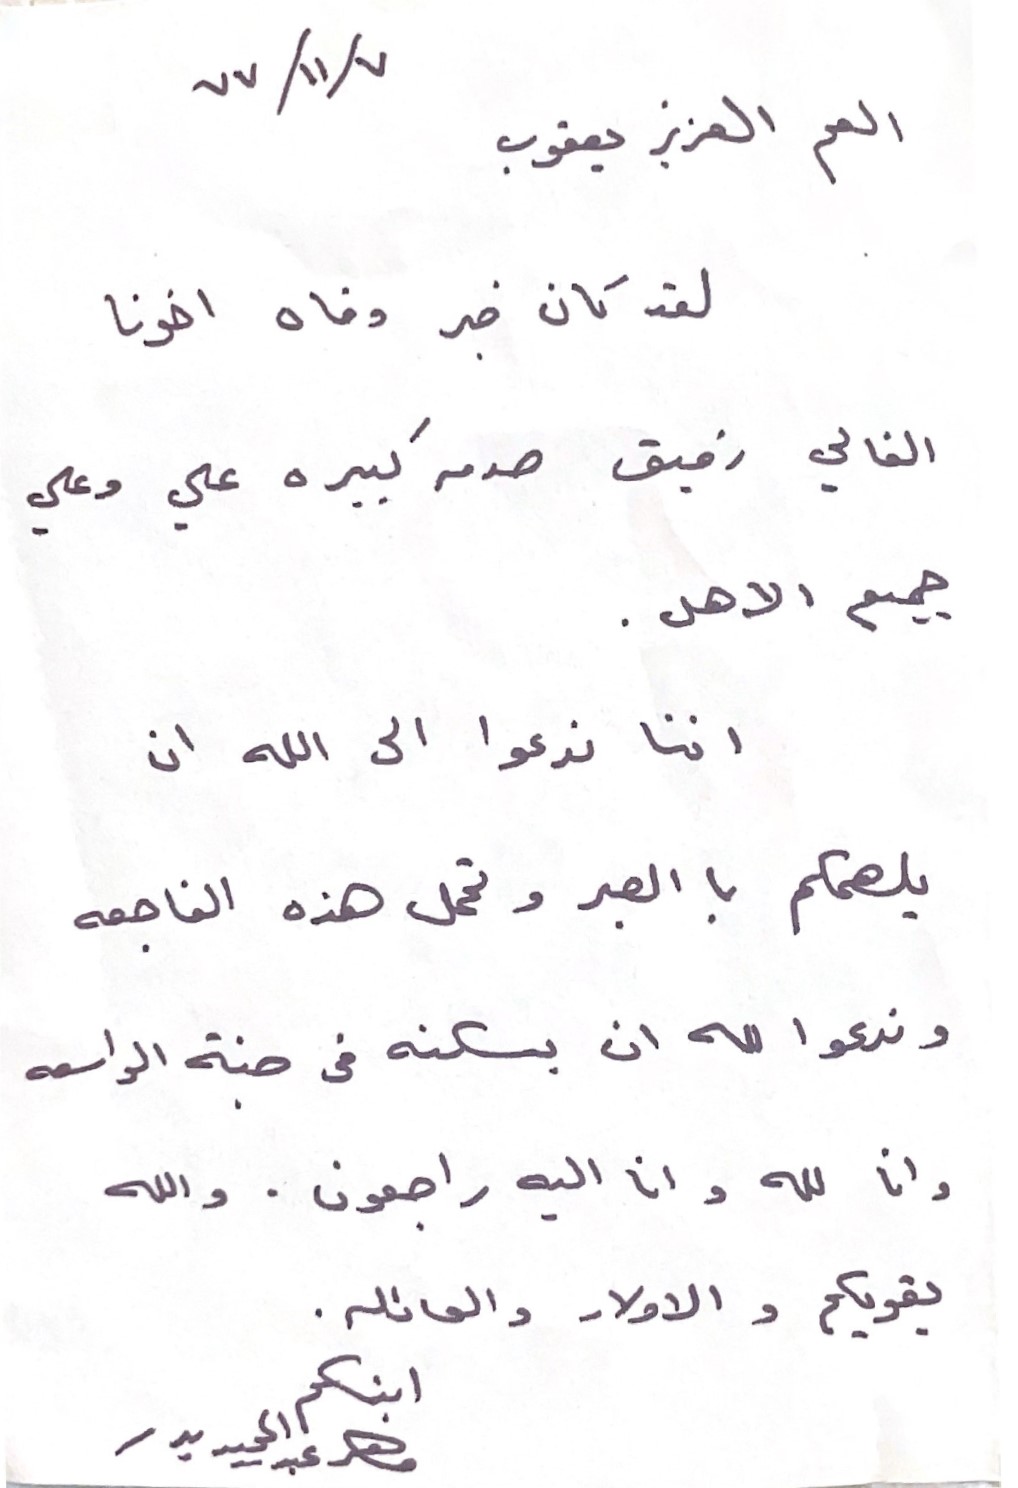 ٧٧/١١/٧
العم العزيز يعقوب
لقد كان خبر وفاه اخونا
الغالي رفيق صدمه كبيره علي وعلي
جميع الاهل .
اننا ندعوا الى الله ان
يلهمكم با الصبر و تحمل هذه الفاجعه
و ندعوا لله ان يسكنه في جنة الواسعه
وانا لله و انا اليه راجعون . والله
يقويكم و الاولاد والعائله .
ابنكم
عبد